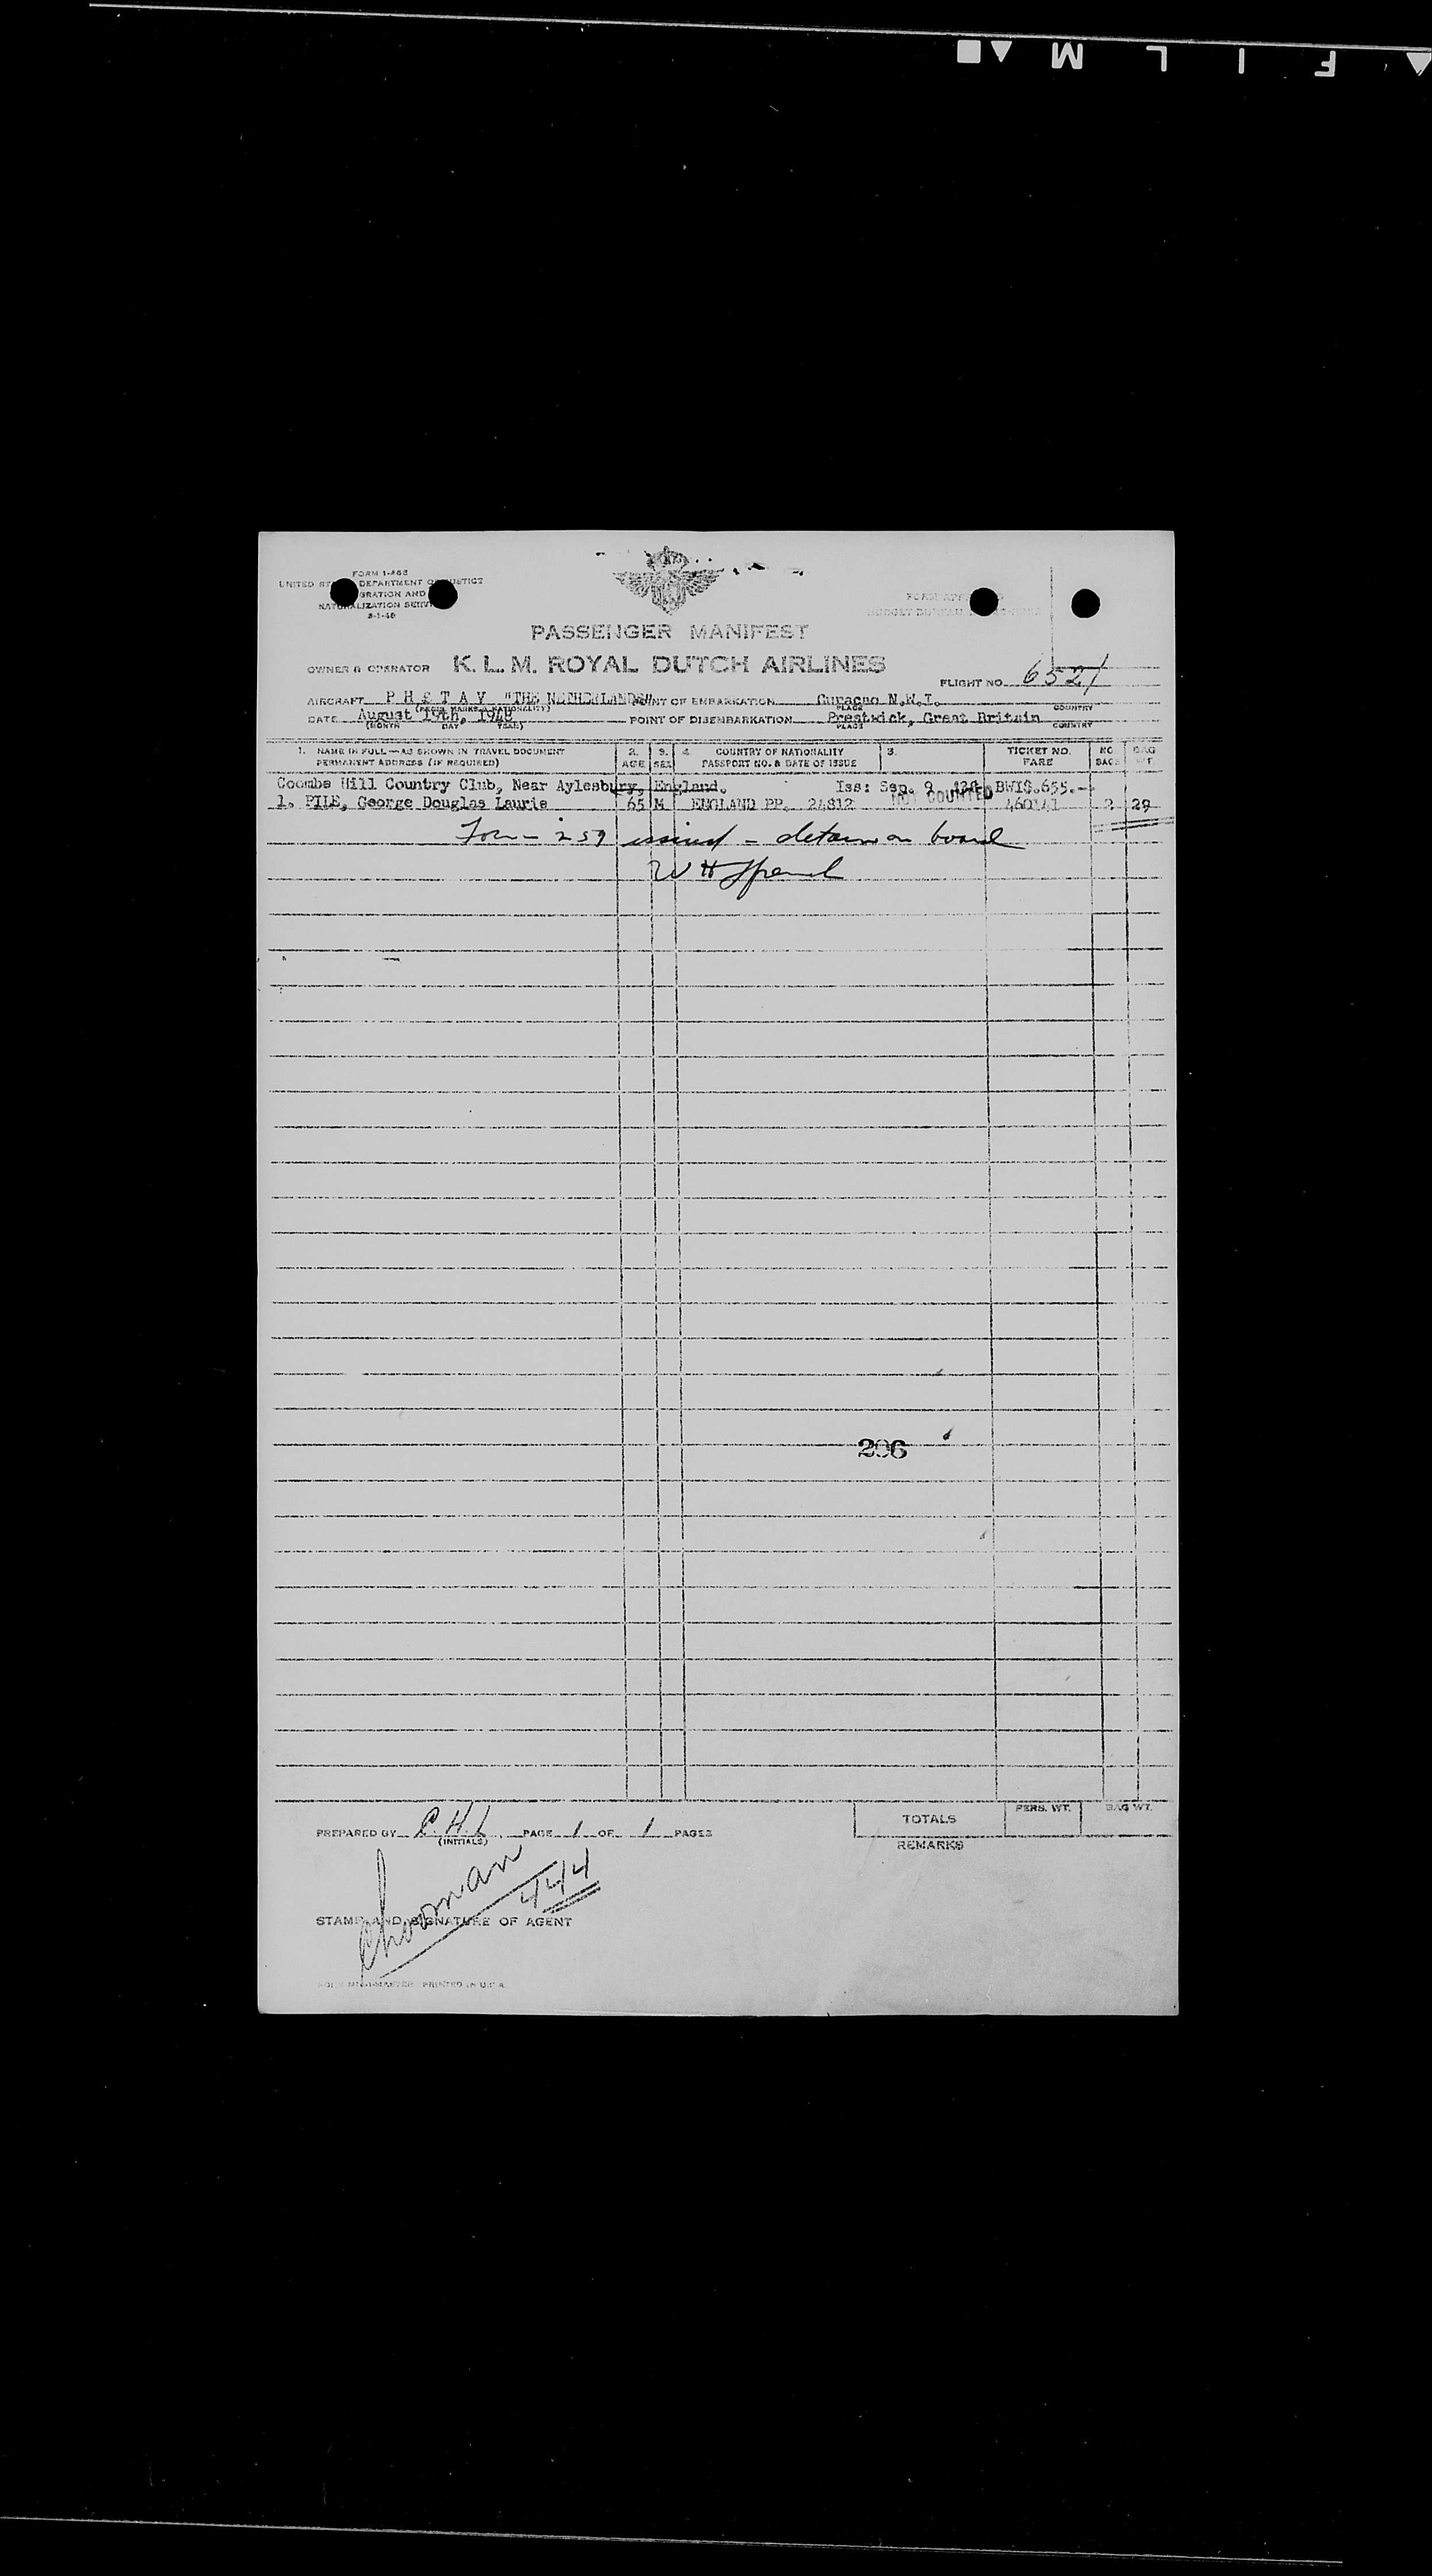 FILM
FORM I-466
UNITED DEPARTMENT OF JUSTICE
AND
NATURALIZATION SERVICE
PASSENGER MANIFEST
OWNER & OPERATOR K. L. M. ROYAL DUTCH AIRLINES
FLIGHT NO. 6521
AIRCRAFT "THE NETHERLANDS" POINT OF EMBARKATION Curacao N.W.I.
(REGIS. MARKS & NATIONALITY) PLACE COUNTRY
DATE August 19th, 1948 POINT OF DISEMBARKATION Prestwick, Great Britain
(MONTH DAY YEAR) PLACE COUNTRY
1. NAME IN FULL — AS SHOWN IN TRAVEL DOCUMENT 2. 3. 4. COUNTRY OF NATIONALITY TICKET NO. NO. BAG
PERMANENT ADDRESS (IF REQUIRED) AGE SEX PASSPORT NO. & DATE OF ISSUE FARE BAGS WT.
Coombe Hill Country Club, Near Aylesbury, England. Iss: Sep. 9 BWI$.655.-
NOT COUNTED
1. PILE, George Douglas Laurie 65 M ENGLAND PP. 24812 460141 2 29
Form 259 issued - detain on board
W H
296
PREPARED BY C.H.L. PAGE 1 OF 1 PAGES
(INITIALS)
TOTALS PERS. WT. BAG WT.
REMARKS
444
STAMP AND SIGNATURE OF AGENT
PRINTED IN U.S.A.